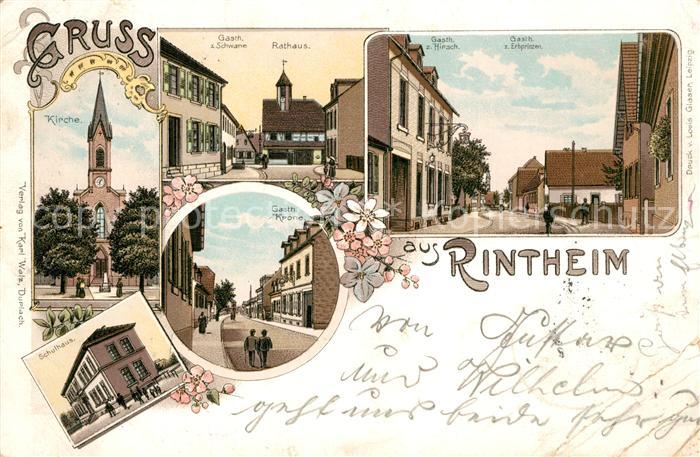 GRUSS
aus RINTHEIM
Kirche.
Gasth.
z. Schwane
Rathaus.
Gasth.
z. Hirsch.
Gasth.
z. Erbprinzen.
Gasth.
Krone.
Schulhaus.
Verlag von Karl Walz, Durlach.
Druck v. Louis Glaser, Leipzig.
Von Gustav
und Wilhelm
geht uns beide sehr gut